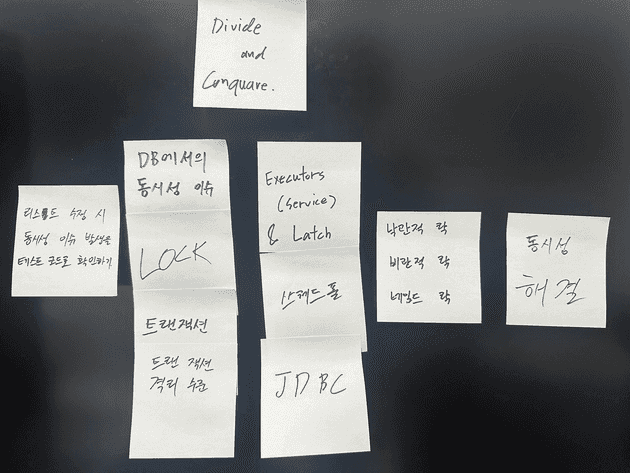 Divide
and
Conquare.
수정 시
동시성 이슈 발생을
테스트 코드로 확인하기
DB에서의
동시성 이슈
LOCK
트랜잭션
트랜잭션
격리 수준
Executors
(Service)
& Latch
스레드 풀
JDBC
낙관적 락
비관적 락
네임드 락
동시성
해결